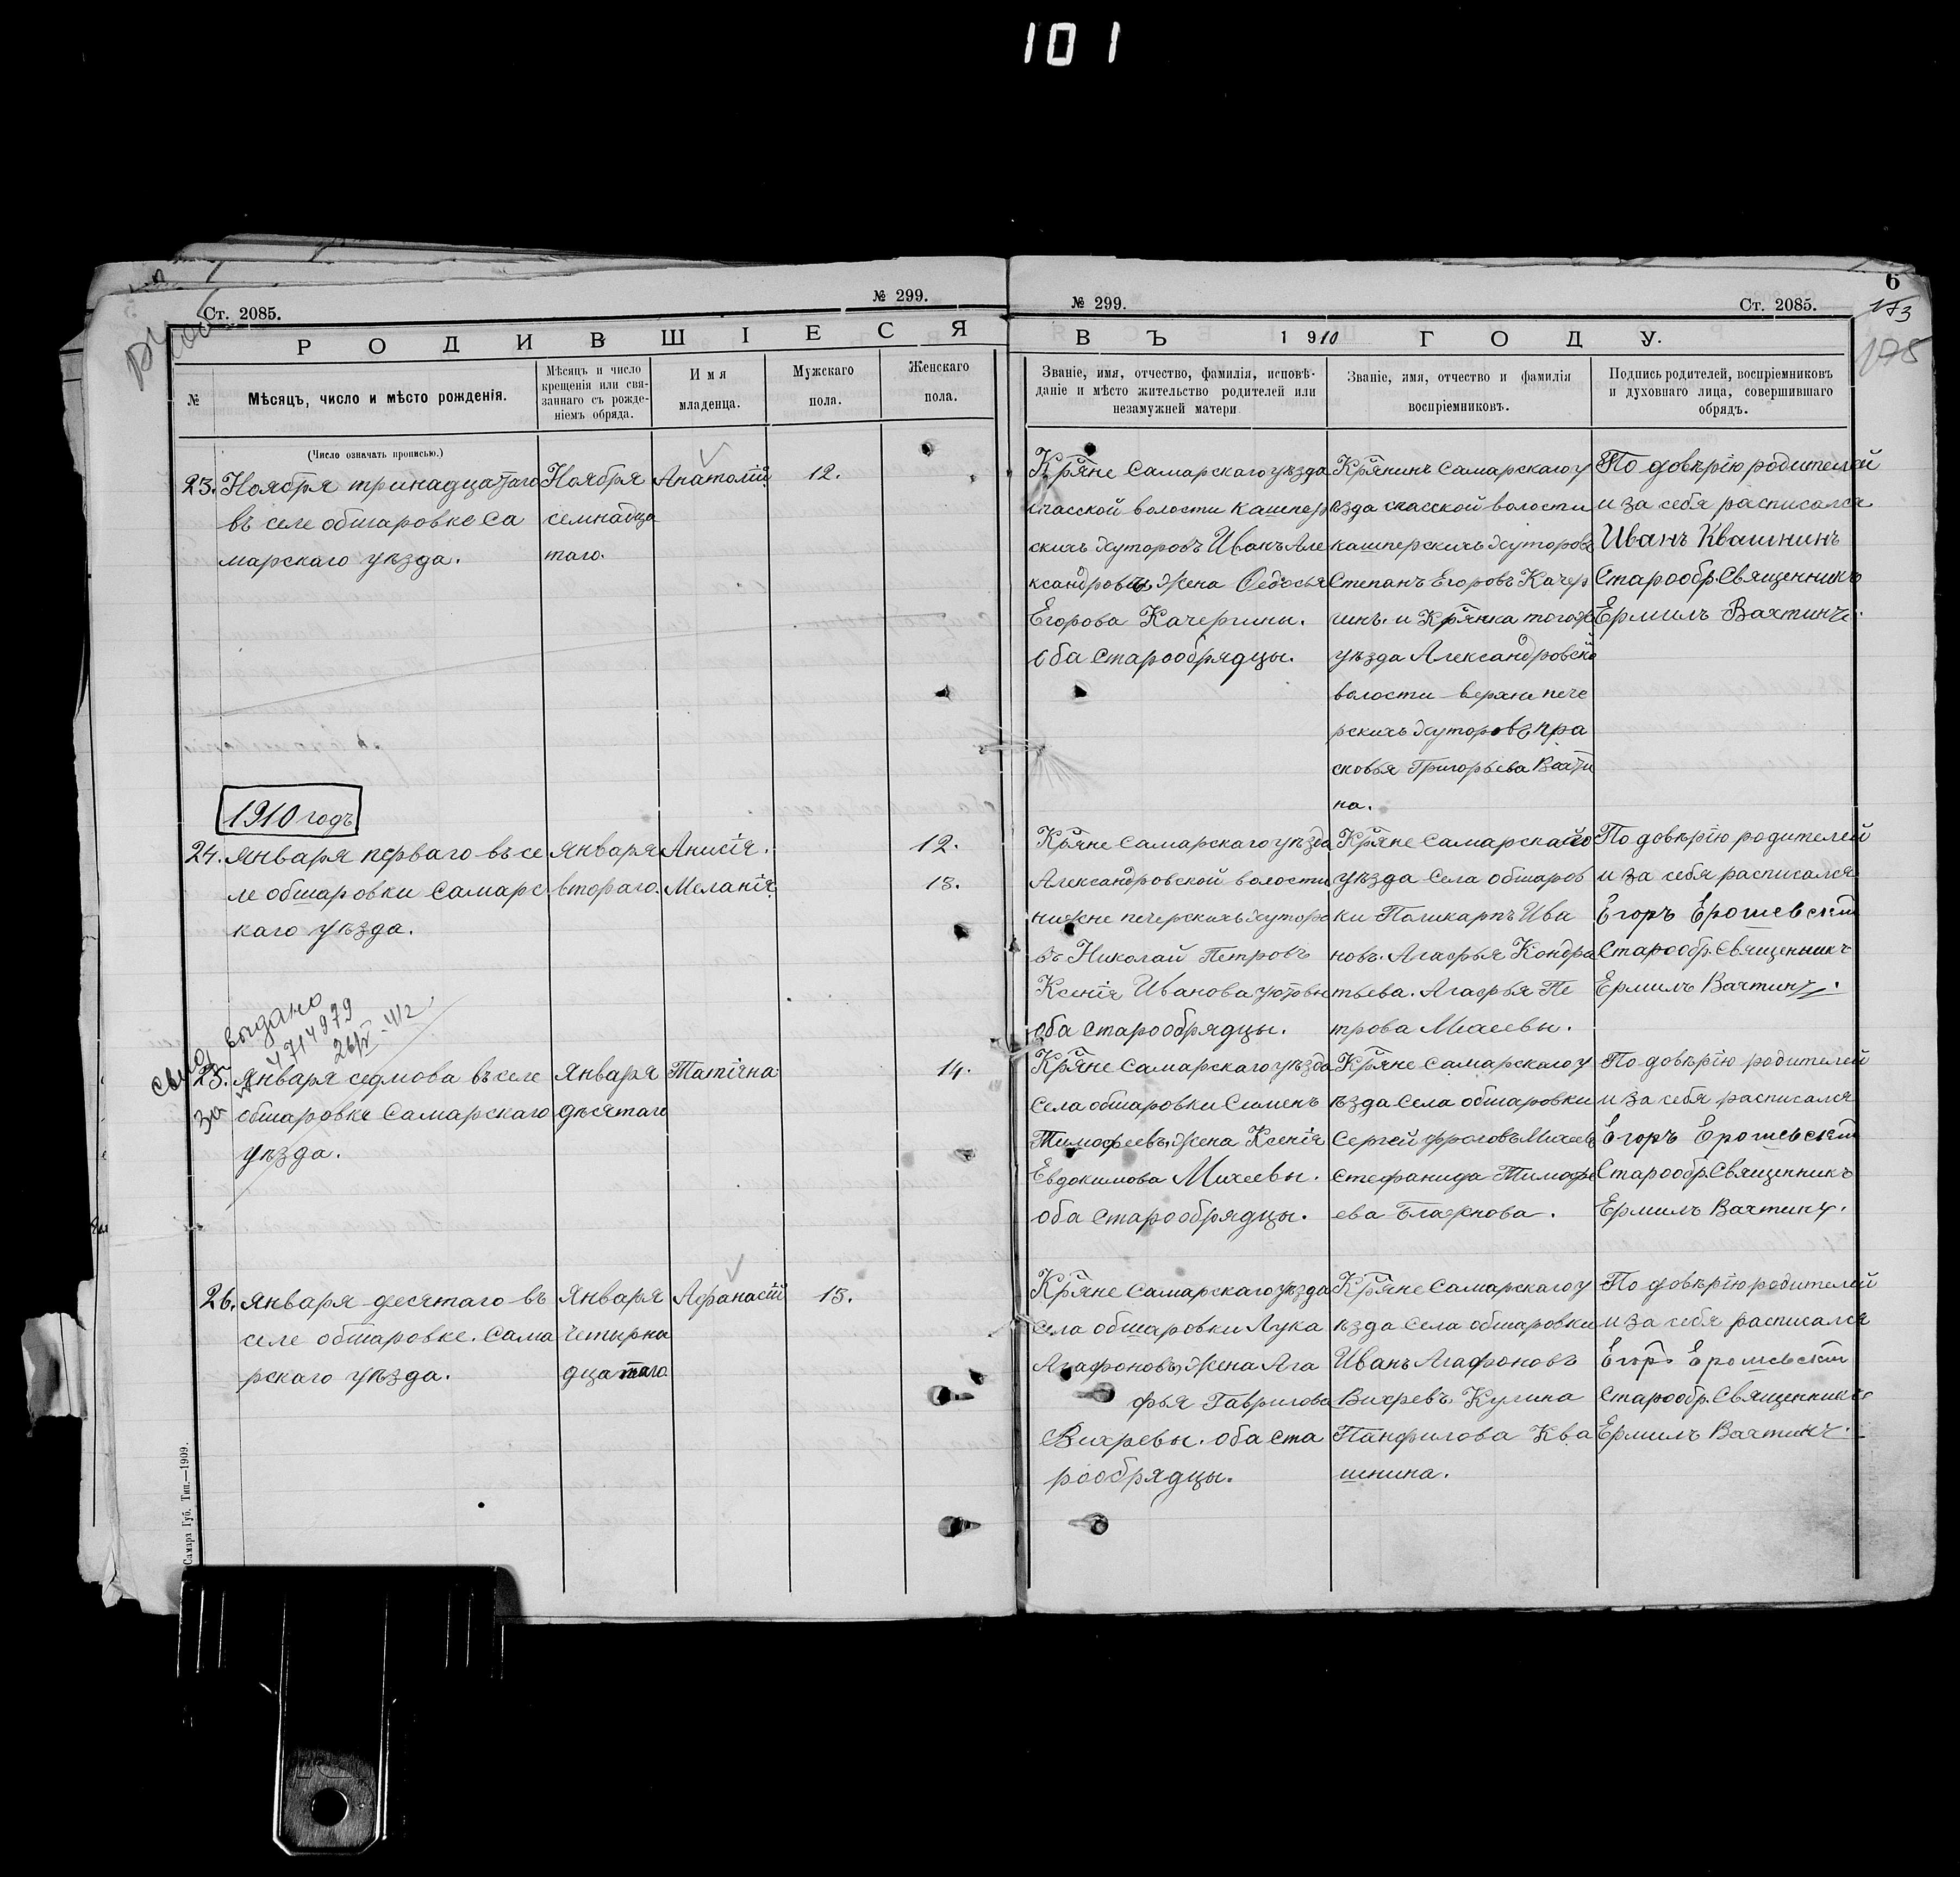 101
Ст. 2085.
№ 299.
РОДИВШІЕСЯ
№
Мѣсяцъ, число и мѣсто рожденія.
Мѣсяцъ и число
крещенія или свя-
заннаго съ рожде-
ніемъ обряда.
Имя
младенца.
Мужскаго
пола.
Женскаго
пола.
(Число означать прописью.)
23. Ноября тринадцатаго
въ селе обшаровке Са
марскаго уѣзда.
Ноября
семнадца
таго.
Анатолій
12.
1910 годъ
24. Января перваго въ се
ле обшаровки Самарс
каго уѣзда.
Января
втораго.
Анисія.
Меланія.
12.
13.
выдано
4714979
25. Января седмова въ селе
обшаровке Самарскаго
уѣзда.
Января
десятаго
Татіяна
14.
26. Января десятаго въ
селе обшаровке. Сама
рскаго уѣзда.
Января
Четырна
дцатаго
Афанасій
13.
Самара Губ. Тип.—1909.
6
173
175
№ 299.
Ст. 2085.
ВЪ 1910 ГОДУ.
Званіе, имя, отчество, фамилія, исповѣ-
даніе и мѣсто жительство родителей или
незамужней матери
Званіе, имя, отчество и фамилія
воспріемниковъ.
Подпись родителей, воспріемниковъ
и духовнаго лица, совершившаго
обрядъ.
Кр̃яне Самарскаго уѣзда
спасской волости кашпер
скихъ хуторовъ Иванъ Але
ксандровъ, Жена Федосья
Егорова Качергины.
оба Старообрядцы.
Кр̃янинъ Самарскаго у
ѣзда спасской волости
кашперскихъ хуторовъ
Степанъ Егоровъ Качер
гинъ. и Кр̃янка тогож
уѣзда Александровской
волости верхне пече
рскихъ хуторовъ пра
сковья Григорьева Вахти
на.
По довѣрію родителей
и за себя расписался
Иванъ Квашнинъ
Старообр. Священникъ
Ермилъ Вахтинъ.
Кр̃яне Самарскаго уѣзда
Александровской волости
нижне печерскихъ хуторо
въ Николай Петровъ
Ксенія Иванова
оба старообрядцы.
Кр̃яне Самарскаго
уѣзда Села обшаров
ки Поликарпъ Ива
новъ. Агафья Кондра
тьева. Агафья Пе
трова Михеевы.
По довѣрію родителей
и за себя расписался
Егоръ Ерошевскій
Старообр. Священникъ
Ермилъ Вахтинъ.
Кр̃яне Самарскаго уѣзда
Села обшаровки Сименъ
Тимофеевъ, Жена Ксенія
Евдокимова Михеевы.
оба Старообрядцы.
Кр̃яне Самарскаго у
ѣзда Села обшаровки
Сергей фроловъ Михеевъ
Стефанида Тимофе
ева
По довѣрію родителей
и за себя расписался
Егоръ Ерошевскій
Старообр. Священникъ
Ермилъ Вахтинъ.
Кр̃яне Самарскаго уѣзда
Села обшаровки Лука
Агафоновъ, Жена Ага
фья Гаврилова
Вихревы. оба Ста
рообрядцы.
Кр̃яне Самарскаго у
ѣзда Села обшаровки
Иванъ Агафоновъ
Вихревъ. Кулина
Панфилова Ква
шнина.
По довѣрію родителей
и за себя расписался
Егоръ Ерошевскій
Старообр. Священникъ
Ермилъ Вахтинъ.